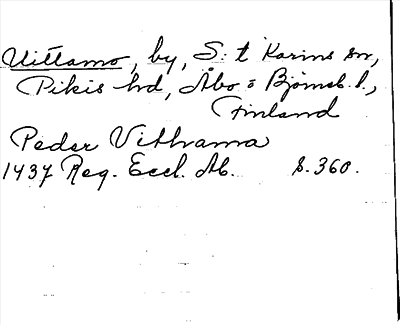 Uittamo, by, S:t Karins sn,
Pikis hd, Åbo o Björneb. l.,
Finland
Peder Vithrama
1437 Reg. Eccl. Ab. S. 360.